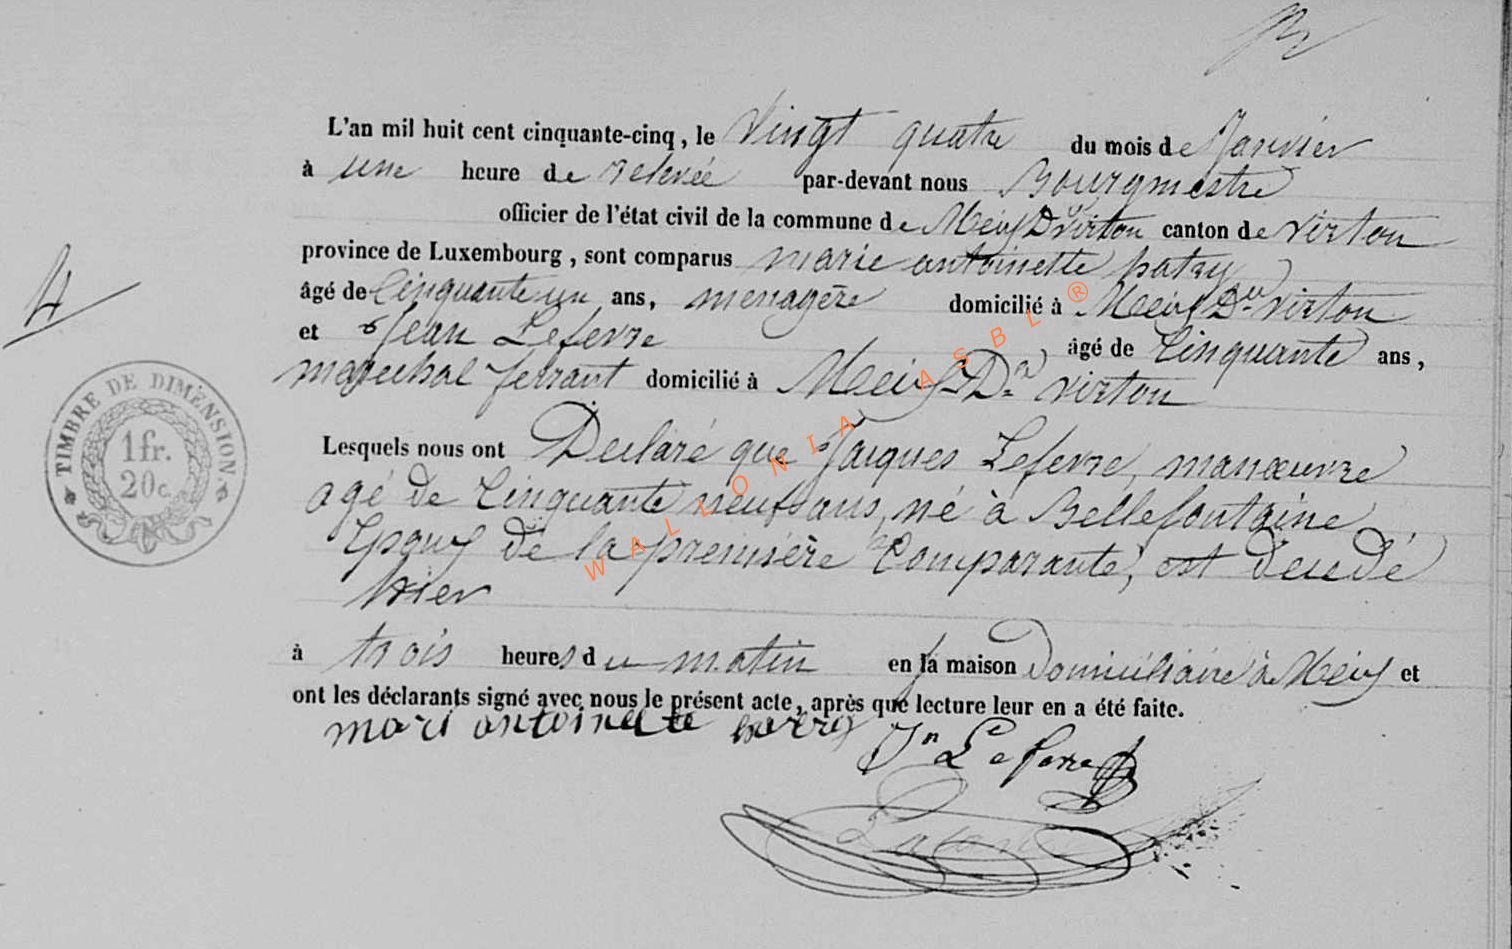 L'an mil huit cent cinquante-cinq, le Vingt quatre du mois de Janvier
à une heure de relevée par-devant nous Bourgmestre
officier de l'état civil de la commune de Meix Dt Virton canton de Virton
province de Luxembourg, sont comparus marie antoinette patry
âgé de Cinquante un ans, menagère domicilié à Meix Dt virton
et Jean Lefevre âgé de Cinquante ans,
marechal ferrant domicilié à Meix Dt virton
4
TIMBRE DE DIMENSION.
1 fr.
20 c.
Lesquels nous ont Declaré que Jacques Lefevre, manœuvre
agé de Cinquante neuf ans, né à Bellefontaine
Epoux de la première Comparante, est décedé
hier
à trois heures du matin en sa maison Domiciliaire à Meix et
ont les déclarants signé avec nous le présent acte, après que lecture leur en a été faite.
mari antoinette
Jn Lefevre
WALLONIA ASBL ®